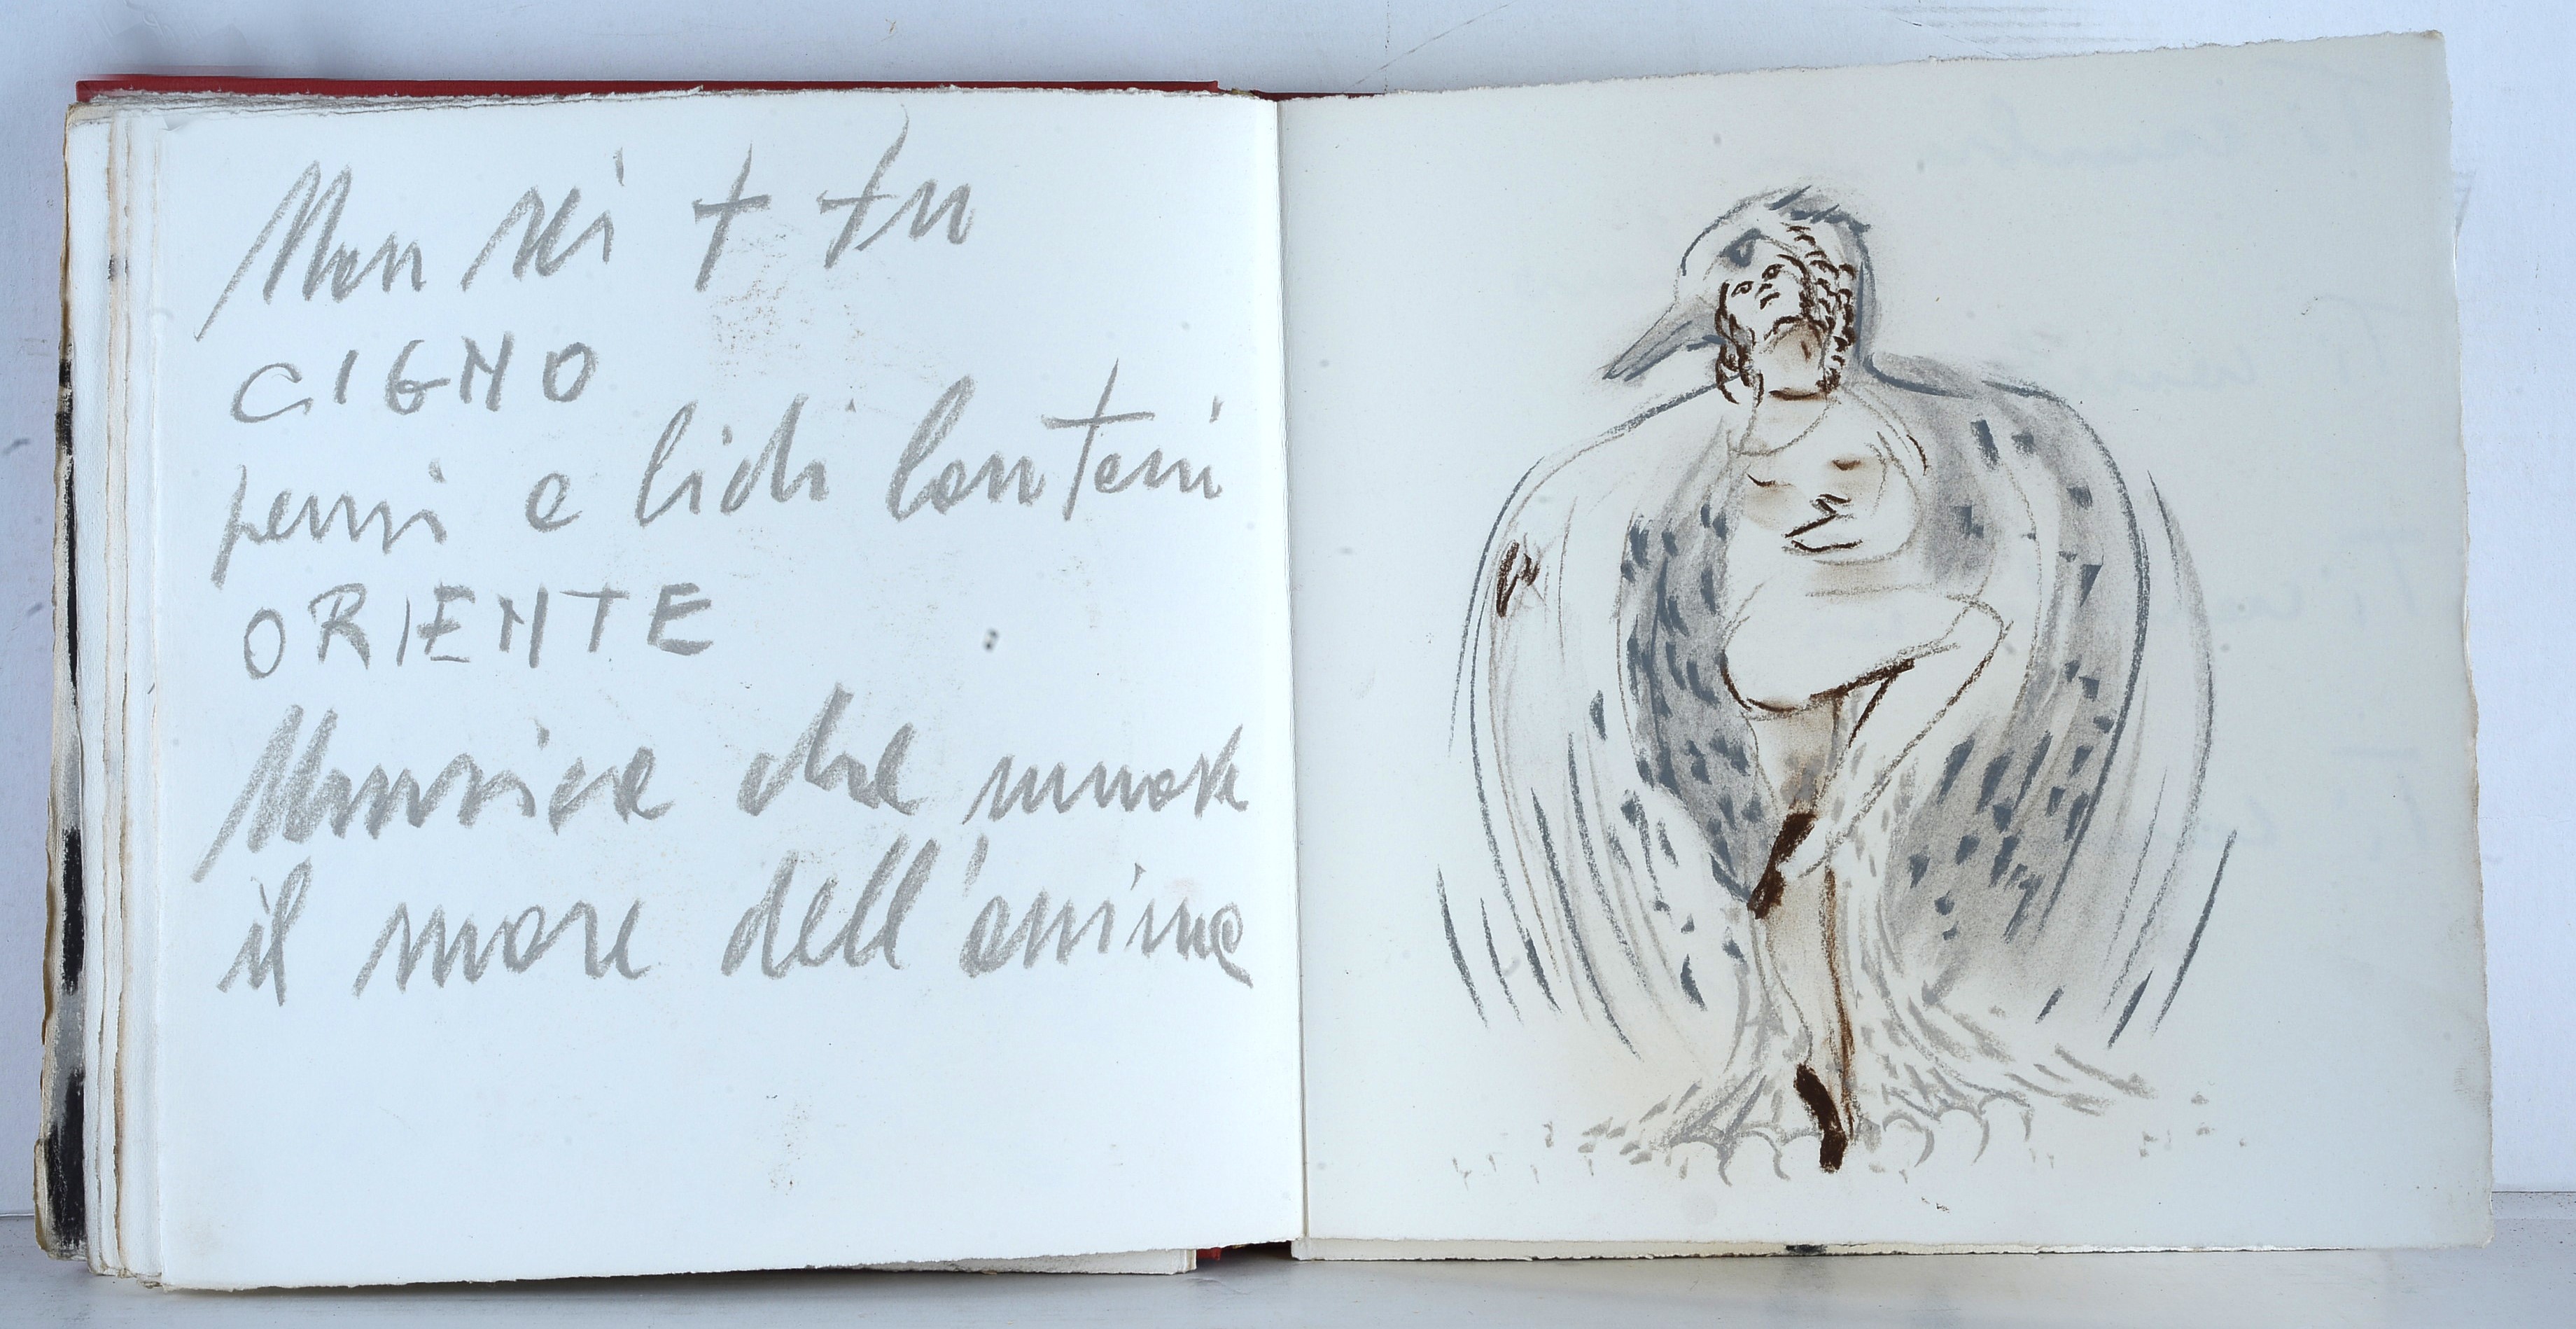 Non sei + tu
CIGNO
pensi e lidi lontani
ORIENTE
Musica che muove
il mare dell'anima